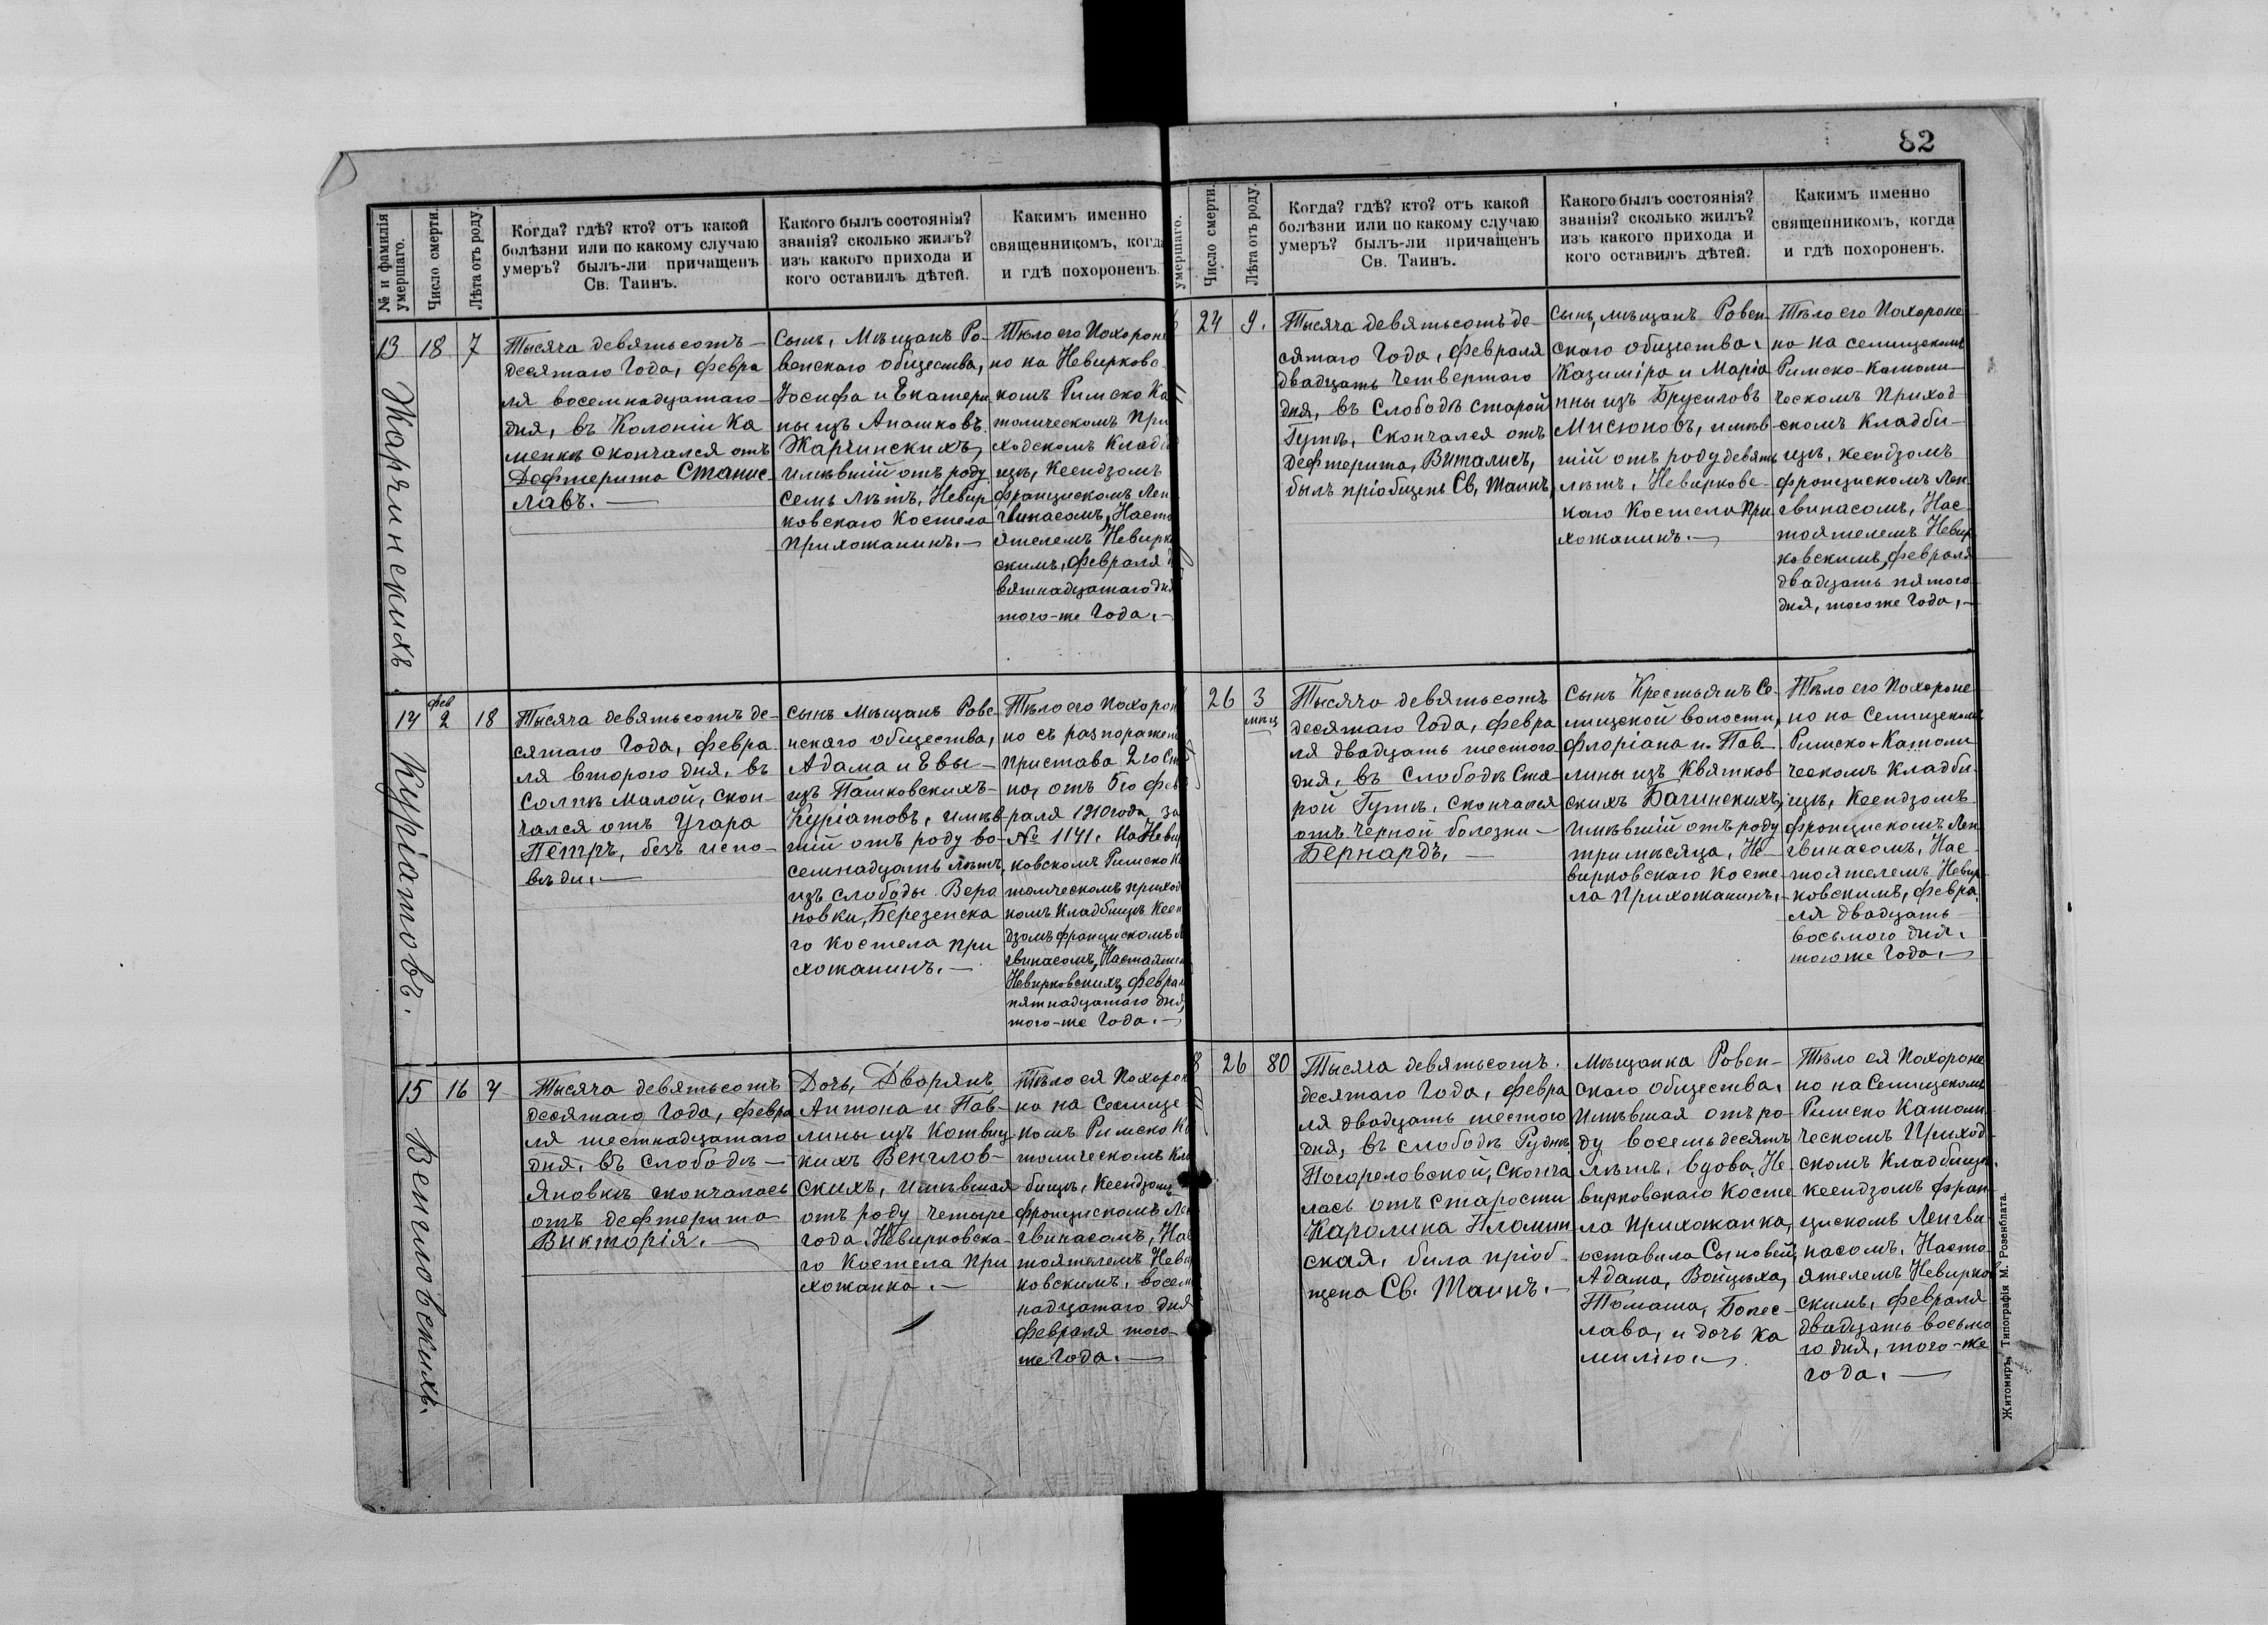 82
№ и фамилія
умершаго.
Число смерти.
Лѣта отъ роду.
Когда? гдѣ? кто? отъ какой
болѣзни или по какому случаю
умеръ? былъ-ли причащенъ
Св. Таинъ.
Какого былъ состоянія?
званія? сколько жилъ?
изъ какого прихода и
кого оставилъ дѣтей.
Какимъ именно
священникомъ, когда
и гдѣ похороненъ.
13
Жарчинскихъ.
18
7
Тысяча девятьсотъ
десятаго Года, Февра
ля восемнадцатаго
дня, въ Колоніи Ка
менкѣ скончался отъ
Дефтерита Станис
лавъ.
Сынъ, Мѣщанъ Ро-
венскаго общества,
Іосифа и Екатери
ны изъ Апашковъ
Жарчинскихъ,
имѣвшій отъ роду
семь лѣтъ, Невир
ковскаго Костела
Прихожанинъ.
Тѣло его Похороне
но на Невирковс
комъ Римско Ка
толическомъ При
ходскомъ Кладби
щѣ, Ксендзомъ
Францискомъ Лен
гвинасомъ, Насто
ятелемъ Невирко
скимъ, Февраля
вятнадцатаго дня
того-же Года.
14
Куріатовъ.
фев
2
18
Тысяча девятьсотъ де-
сятаго Года, Февра
ля второго дня, въ
Солпѣ Малой, скон-
чался отъ Угара
Петръ, безъ испо-
вѣди.
Сынъ Мѣщанъ Рове-
нскаго общества,
Адама и Евы
изъ Пашковскихъ
Куріатовъ, имѣв
шій отъ роду во-
семнадцать лѣтъ,
изъ слободы Вера
новки, Березенска
го Костела При
хожанинъ.
Тѣло его Похорон
но съ разпоражен
Пристава 2го Ст
на, отъ 5го Фев
раля 1910 года за
№ 1141. На Невир
ковскомъ Римско К
толическомъ приход
комъ Кладбищѣ Ксен
дзомъ Францискомъ Л
гвинасомъ, Настояте
Невирковскимъ, Февра
пятнадцатаго дня,
того-же Года.
15
Венгловскихъ.
16
4
Тысяча девятьсотъ
десятаго Года, Февра
ля шестнадцатаго
дня, въ Слободѣ
Яновкѣ скончалась
отъ дефтерита
Викторія.
Дочь, Дворянъ
Антона и Пав-
лины изъ Котвиц
кихъ Венглов-
скихъ, имѣвшая
отъ роду четыре
года, Невирковска-
го Костела При
хожанка.
Тѣло ея Похорон
но на Селище
комъ Римско К
толическомъ Кла
бищѣ, Ксендзомъ
Францискомъ Лен
гвинасомъ, Нас
тоятелемъ Невир
ковскимъ, восем
надцатаго дня
Февраля того-
же Года.
умершаго.
Число смерти.
Лѣта отъ роду.
Когда? гдѣ? кто? отъ какой
болѣзни или по какому случаю
умеръ? былъ-ли причащенъ
Св. Таинъ.
Какого былъ состоянія?
званія? сколько жилъ?
изъ какого прихода и
кого оставилъ дѣтей.
Какимъ именно
священникомъ, когда
и гдѣ похороненъ.
24
9.
Тысяча девятьсотъ де-
сятаго Года, Февраля
двадцать Четвертаго
дня, въ Слободѣ Старой
Гутѣ, Скончался отъ
дефтерита, Виталисъ,
былъ пріобщенъ Св. Таинъ,
Сынъ, мѣщанъ Ровен
скаго общества,
Казиміра и Маріа
нны изъ Брусиловъ
Мисюновъ, имѣв
шій отъ роду девять
лѣтъ, Невирковс-
каго Костела При
хожанинъ.
Тѣло его Похороне
но на Селищскомъ
Римско-Католи-
ческомъ Приход
скомъ Кладби-
щѣ, Ксендзомъ
Францискомъ Лен
гвинасомъ, Нас
тоятелемъ Невир
ковскимъ, Февраля
двадцать пятаго
дня, того же Года,
26
3
мѣц
Тысяча девятьсотъ
десятаго Года, Февра
ля двадцать шестого
дня, въ Слободѣ Ста
рой Гутѣ, Скончался
отъ черной болезни
Бернардъ.
Сынъ Крестьянъ Се-
лищской волости,
Флоріана и Пав
лины изъ Квятков
скихъ Багинскихъ,
имѣвшій отъ роду
три мѣсяца, Не-
вирковскаго Косте
ла Прихожанинъ.
Тѣло его Похороне
но на Селищскомъ
Римско-Католи
ческомъ Кладби
щѣ, Ксендзомъ
Францискомъ Лен
гвинасомъ, Нас
тоятелемъ Невир
ковскимъ, Февра
ля двадцать
восьмого дня,
того же Года.
8
26
80
Тысяча девятьсотъ
десятаго Года, Февра
ля двадцать шестого
дня, въ слободѣ Рудня
Погореловской, Сконча
лась отъ старости
Каролина Пломин
ская, била пріоб
щена Св. Таинъ.
Мѣщанка Ровен-
скаго общества,
имѣвшая отъ ро-
ду восемьдесятъ
лѣтъ, вдова, Не-
вирковскаго Косте
ла Прихожанка,
оставила Сыновей
Адама, Войцѣха,
Томаша, Болес-
лава, и дочь Ка
милію.
Тѣло ея Похороне
но на Селищскомъ
Римско Католи
ческомъ Приход
скомъ Кладбищѣ,
Ксендзомъ Фран
цискомъ Ленгви
насомъ, Насто
ятелемъ Невирков
скимъ, Февраля
двадцать восьмо
го дня, того-же
года.
Житомиръ, Типографія М. Розенблата.